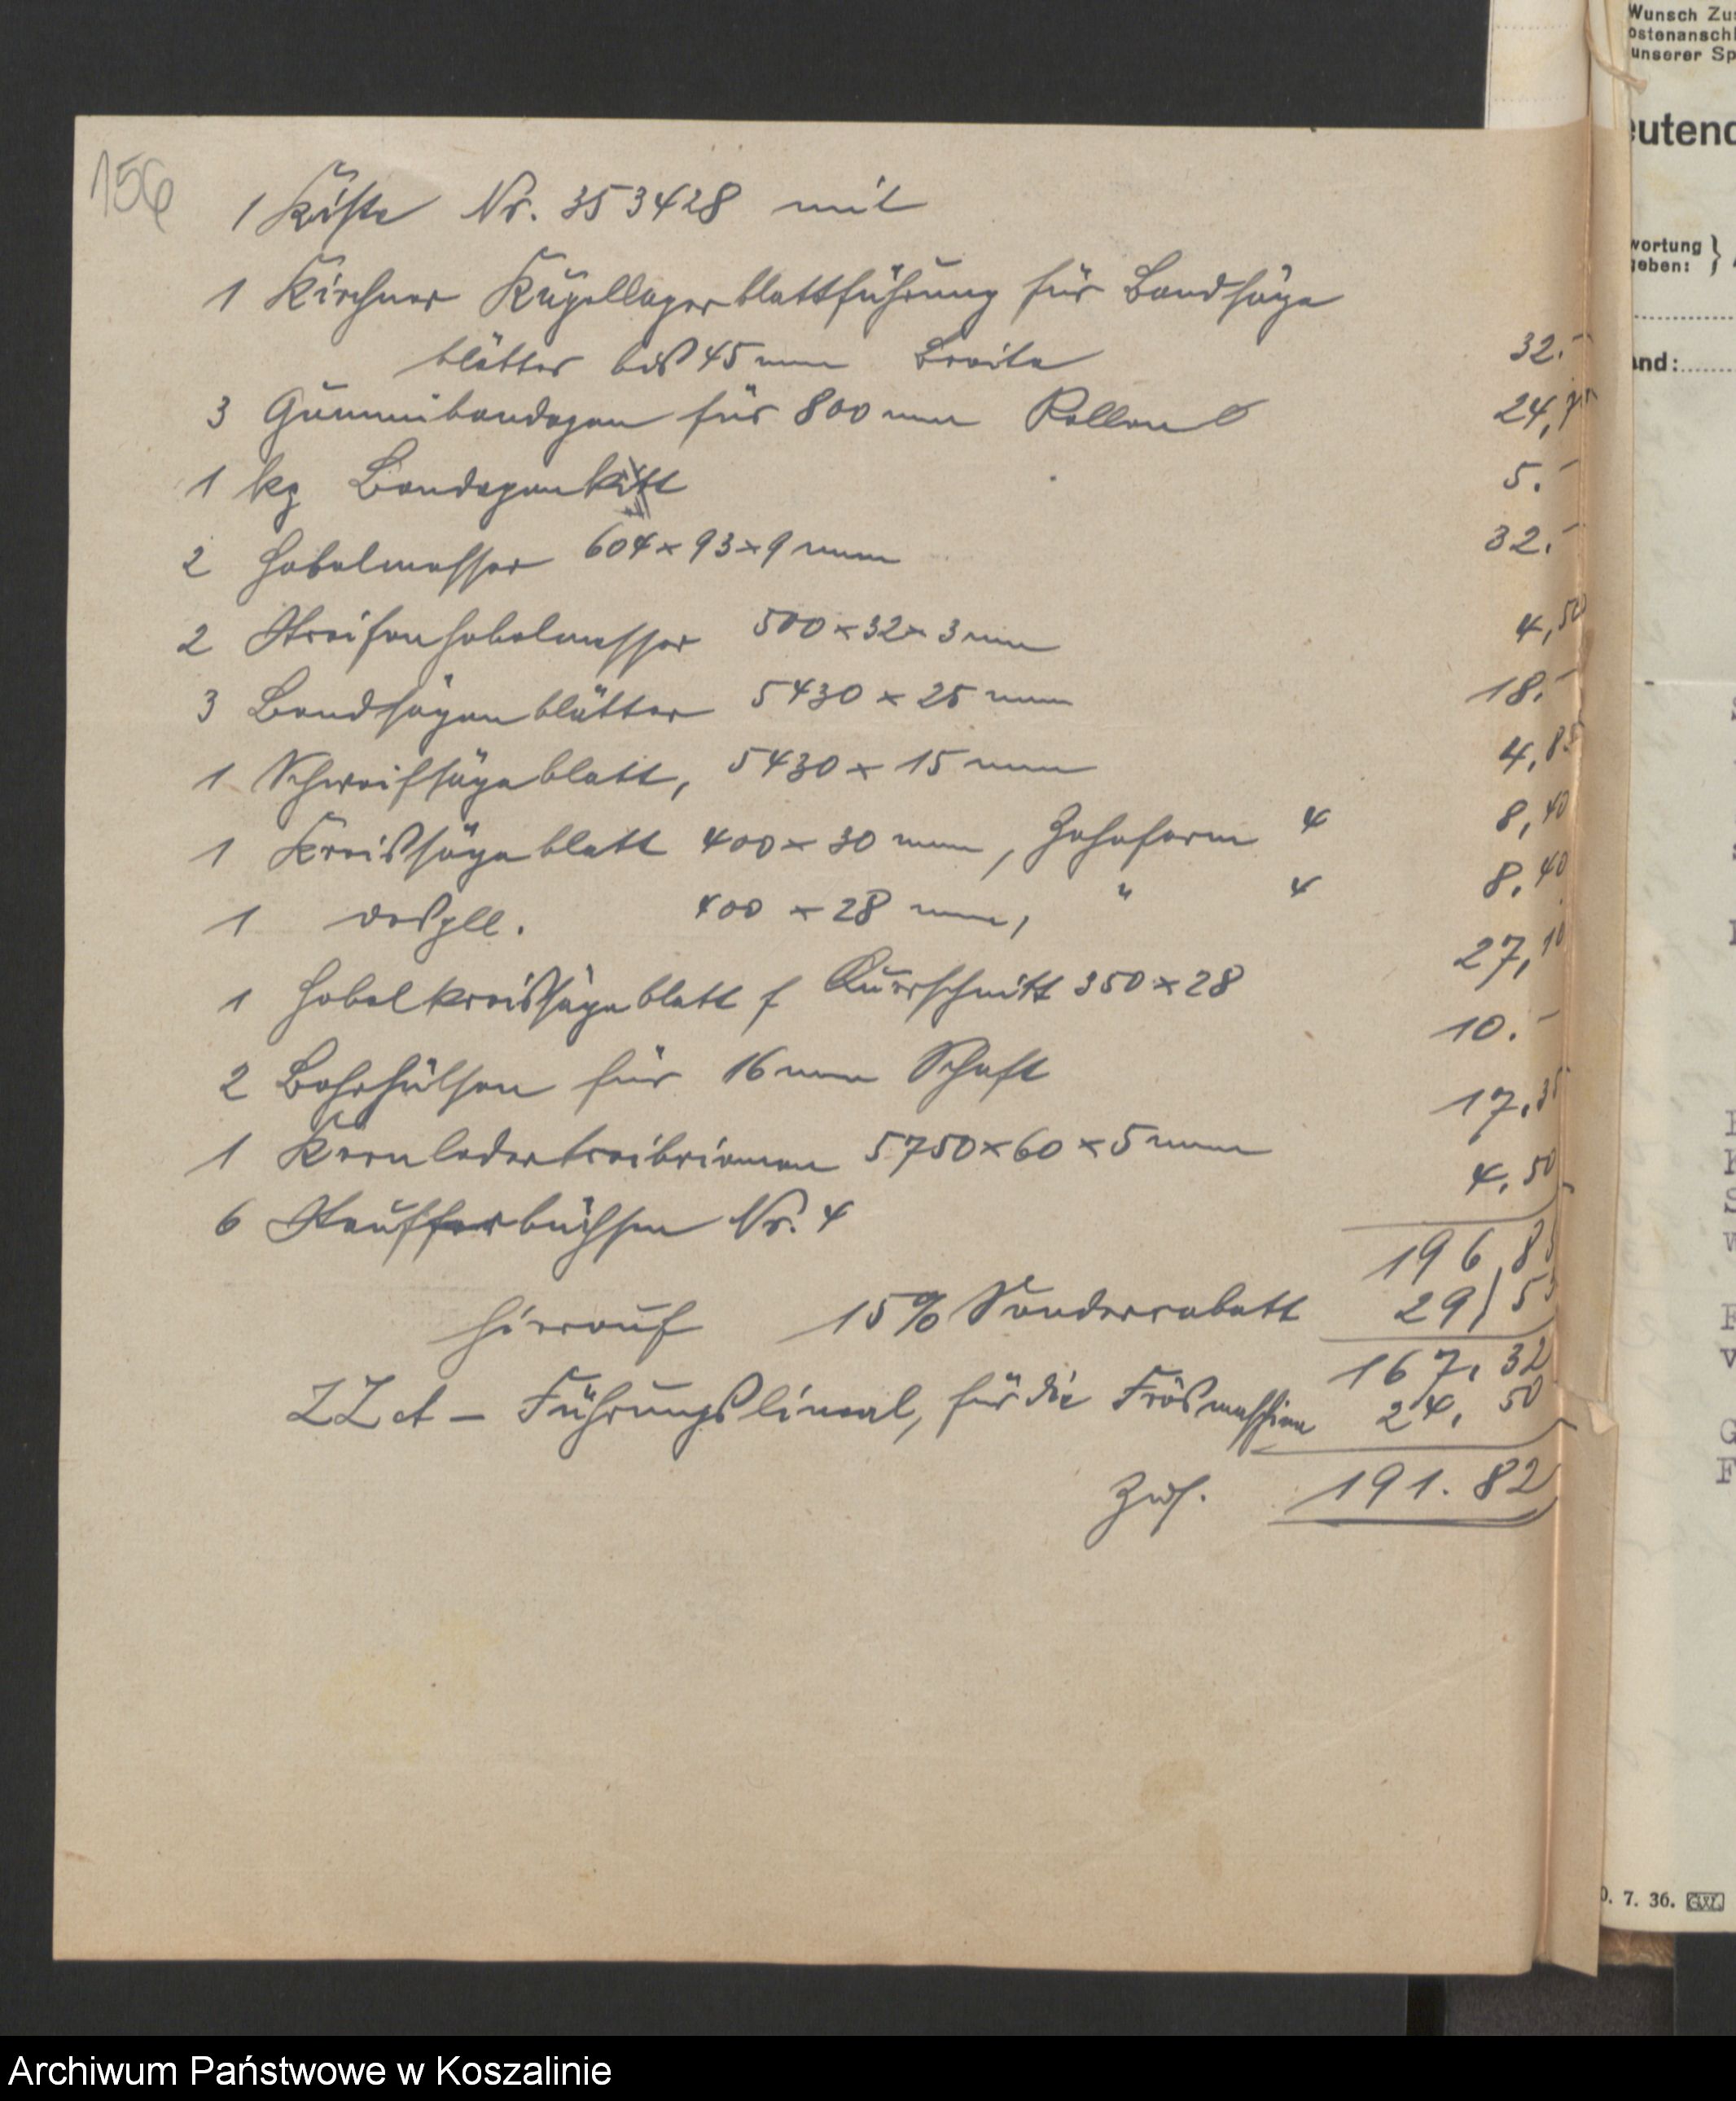 156
1 Kiste Nr. 353428 mit
1 Kirchner Kugellagerblattführung für Bandsäge
blätter bis 45 mm Breite 32.-
3 Gummibandagen für 800 mm Rollen 24,7
1 kg Bandagenkitt 5.-
2 Hobelmesser 604 x 93 x 9 mm 32.-
2 Streifenhobelmesser 500 x 32 x 3 mm 4,50
3 Bandsägenblätter 5430 x 25 mm 18.-
1 Schweifsägeblatt, 5430 x 15 mm 4,85
1 Kreissägeblatt 400 x 30 mm, Zahnform 4 8,40
1 desgll. 400 x 28 mm, " 4 8.40
1 Hobelkreissägeblatt f Querschnitt 350 x 28 27,10
2 Bohrhülsen für 16 mm Schaft 10.-
1 Kernledertreibriemen 5750 x 60 x 5 mm 17.35
6 Staufferbüchsen Nr. 4 4.50
196,85
hierauf 15% Sonderrabatt 29 53
167.32
ZZ A – Führungslineal, für die Fräsmaschine 24.50
Zus. 191.82
Wunsch Zu
ostenansch
unserer Sp
eutend
wortung }
geben:
and:
0. 7. 36.
Archiwum Państwowe w Koszalinie